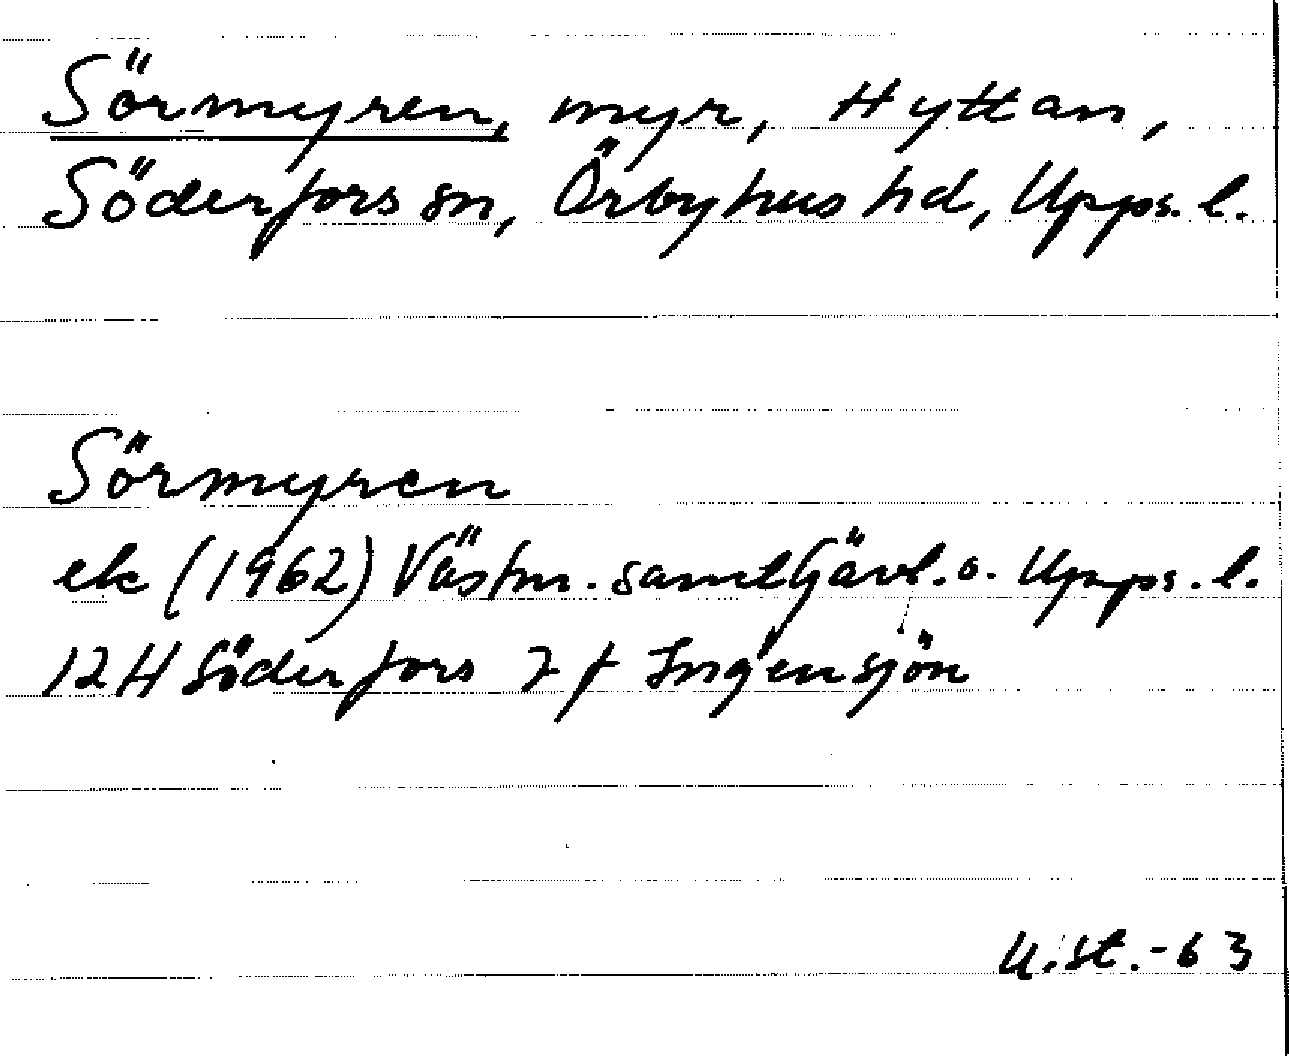 Sörmyren, myr, Hyttan,
Söderfors sn, Örbyhus hd, Upps. l.
Sörmyren
ek (1962) Västm. samt Gävl. o. Upps. l.
12H Söderfors 7 f Ingensjön
U. st. -63